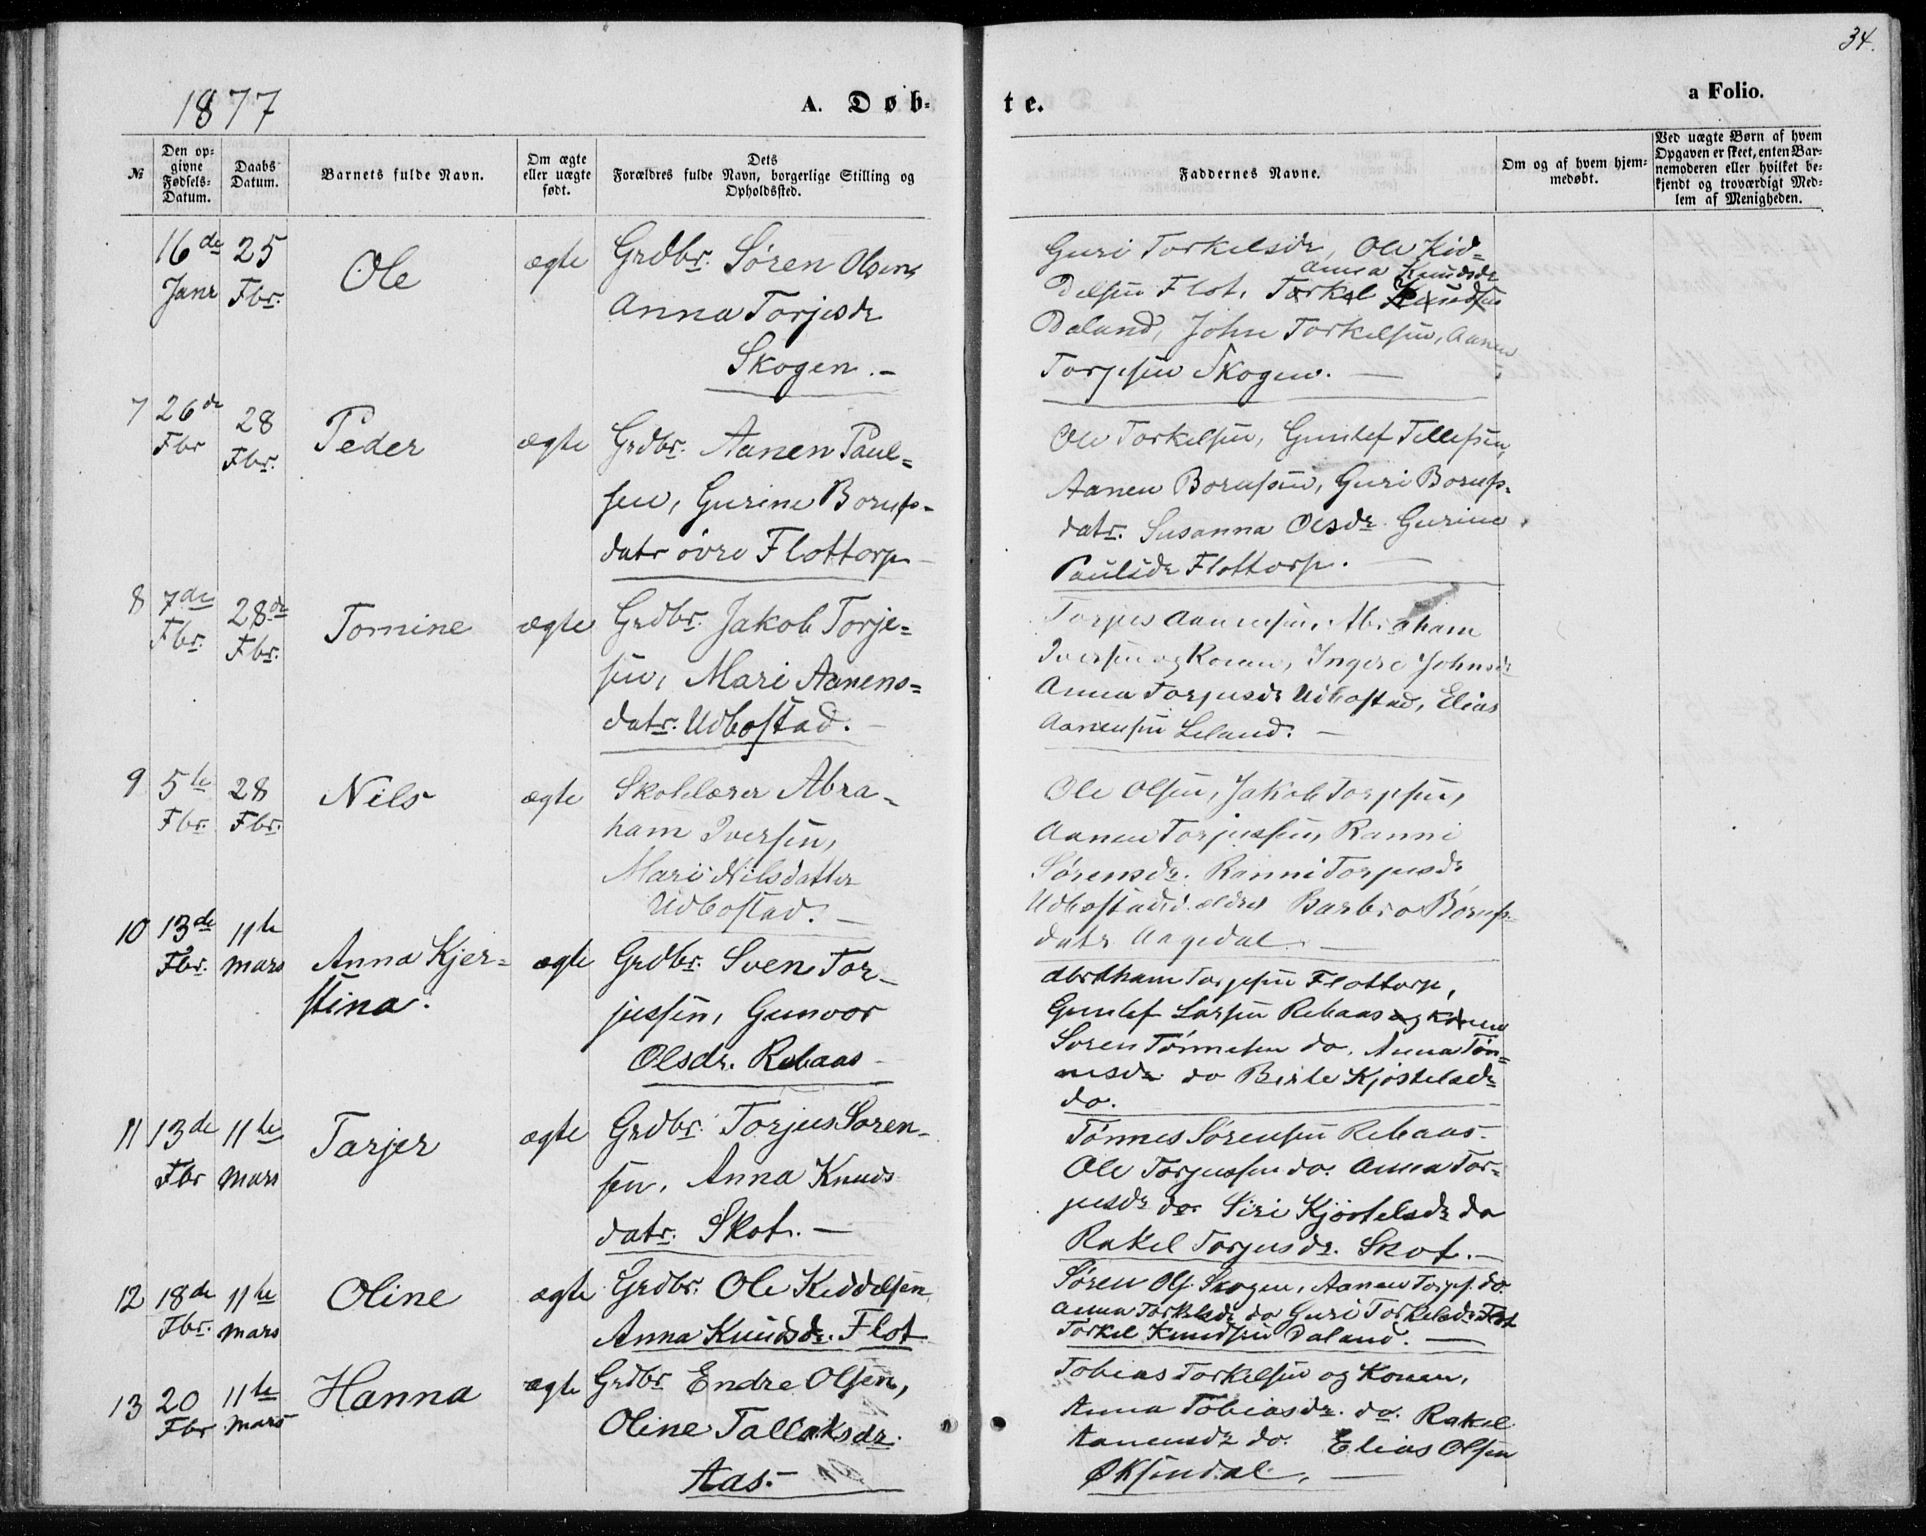 34.
1877
A. Døb-
te.
a Folio.
№
Den op-
givne
Fødsels-
Datum.
Daabs
Datum.
Barnets fulde Navn.
Om ægte
eller uægte
født.
Dets
Forældres fulde Navn, borgerlige Stilling og
Opholdssted.
Faddernes Navne.
Om og af hvem hjem-
medøbt.
Ved uægte Børn af hvem
Opgaven er skeet, enten Bar-
nemoderen eller hvilket be-
kjendt og troværdigt Med-
lem af Menigheden.
16de
Janr
25
Fbr.
Ole
ægte
Grdbr. Søren Olsen,
Anna Torjesdr
Skogen.-
Guri Torkelsdr, Ole Kid=
Anna Knudsdr
delsen Flot, Torkel Knudsen
Daland, John Torkelsen, Aanen
Torjesen Skogen. -
7
26de
Fbr
28
Fbr.
Peder
ægte
Grdbr. Aanen Paul=
sen, Gurine Borufs-
datr øvre Flottorp
Ole Torkelsen, Gunlef Tellefsen,
Aanen Borufsen, Guri Borufs-
datr. Susanna Olsdr Gurine
Paulsdr Flottorp. -
8
7de
Fbr.
28de
Fbr.
Tomine
ægte
Grdbr. Jakob Torje=
sen, Mari Aanens=
datr. Udbostad. -
Torjus Aanensen, Abraham
Iversen og Konen, Ingere Johnsdr
Anna Torjusdr Udbostad, Elias
Aanensen Leland. -
9
5te
Fbr.
28
Fbr.
Nils
ægte
Skolelærer Abra-
ham Iversen,
Mari Nilsdatter
Udbostad. -
Ole Olsen, Jakob Torjesen,
Aanen Torjussen, Ranni
Sørensdr. Ranni Torjusdr
Udbostad d. ældre Barbro Borufs-
datr Aagedal. -
10
13de
Fbr.
11te
Mars
Anna Kjer=
stina.
ægte
Grdbr. Sven Tor-
jussen, Gunvor
Olsdr. Rebaas -
Abraham Torjesen Flottorp,
Gunlef Larsen Rebaas og Konen
Søren Tønnesen do. Anna Tøn=
nesdr do Birte Kjøstelsdr
do.
11
13de
Fbr
11te
Mars
Tarjer
ægte
Grdbr. Torjus Søren-
sen, Anna Knuds
datr. Skot. -
Tønnes Sørensen Rebaas.
Ole Torjussen do. Anna Tor-
jusdr do. Siri Kjøstelsdr do
Rakel Torjusdr. Skot. -
12
18de
Fbr.
11te
Mars
Oline
ægte
Grdbr. Ole Kiddelsen
Anna Knudsdr. Flot
Søren Ols. Skogen, Aanen Torjs. do.
Anna Torkelsdr do Guri Torkelsdr Flot
Torkel Knudsen Daland. -
13
20
Fbr
11te
Mars
Hanna
ægte
Grdbr Endre Olsen,
Oline Tallaksdr.
Aas.-
Tobias Torkelsen og Konen,
Anna Tobiasdr. do. Rakel
Aanensdr do. Elias Olsen
Øksendal. -